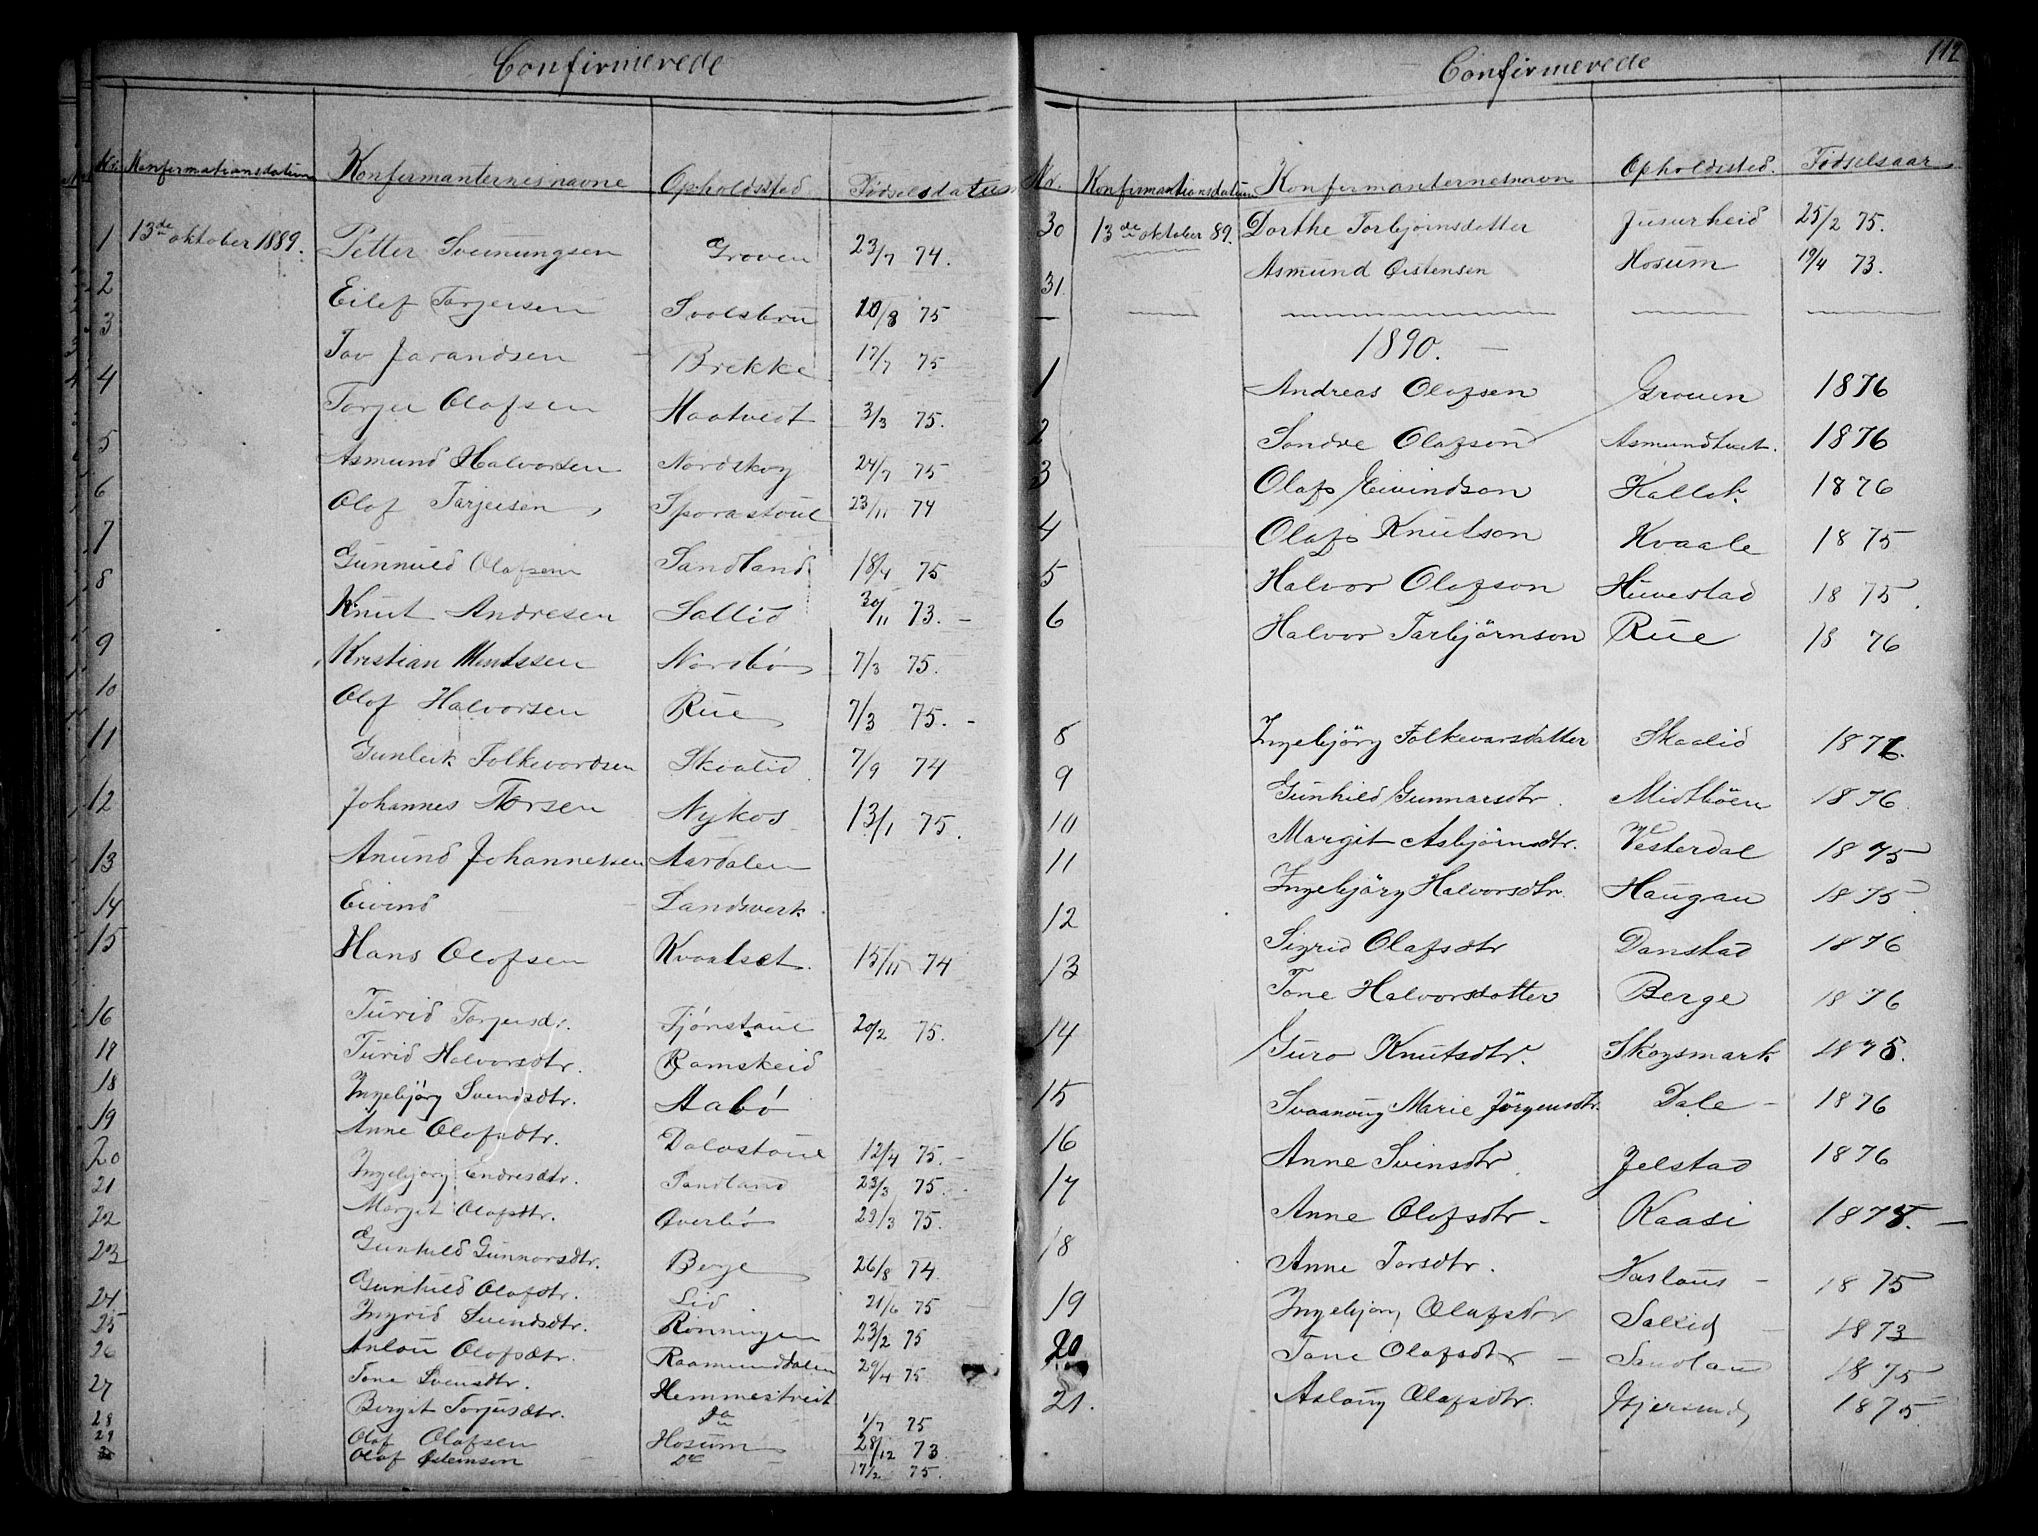 Confirmerede
Nr. Konfirmationsdatum Konfirmanternes navne Opholdssted Fødselsdatum
1 13de oktober 1889. Petter Sveinungsen Groven 23/7 74.
2 Eilef Torjersen Svolsbru 10/8 75
3 Tov Jarandsen Brekke 17/7 75
4 Torjer Olafsen Haatveit 3/3 75.
5 Asmund Halvorsen Nordskog 24/7 75
6 Olaf Tarjeisen Sporastoul 23/11 74
7 Gunnuld Olafsen Sandland 18/4 75
8 Knut Andresen Sallid 30/11 73.
9 Kristian Nordbø 7/3 75.
10 Olaf Halvorsen Rue 7/3 75.
11 Gunleik Folkevordsen Skvalid 7/9 74
12 Johannes Torsen Nykos 13/1 75.
13 Anund Johannessen Aardalen
14 Eivind Landsverk
15 Hans Olofsen Kvaalset. 15/11 74
16 Turid Torjusdr. Tjønstoul 20/2 75.
17 Turid Halvorsdtr. Ramskeid
18 Ingebjörg Svendsdtr. Aabø
19 Anne Olofsdtr. Dalastoul 12/4 75.
20 Ingebjorg Endresdtr. Sandland 23/3 75.
21 Margit Olafsdtr. Øverbø 29/3 75.
22 Gunhild Gunnorsdtr. Berge 26/8 74.
23 Gunhild Olafsdtr. Lid 21/6 75
24 Ingrid Svendsdtr. Rönningen 23/2 75
25 Anlou Olofsdtr. Raamunddalen 29/4 75
26 Tone Svensdtr. Hemmestveit
27 Bergit Torjusdtr. 1/7 75
28 Olaf Olafsen Hosum 28/12 73
29 Olaf Østensen Do 17/2 75.
Confirmerede 112
Nr. Konfirmantionsdatum Konfirmanternesnavn Opholdssted. Fødselsaar
30 13de oktober 89. Dorthe Torbjørnsdatter Jusurheid 25/2 75.
31 Asmund Øistensen Hosum 19/4 73.
1890.
1 Andreas Olafsen Grouen 1876
2 Sondre Olafson Asmundtveit. 1876
3 Olaf Eivindson Kallak 1876
4 Olaf Knutson Kvaale 1875
5 Halvor Olafson Huvestad 1875.
6 Halvor Tarbjörnson Rue 1876
8 Ingebjörg Folkevarsdatter Skalid 1876.
9 Gunhild Gunnarsdtr. Midtböen 1876.
10 Margit Asbjörnsdtr. Vesterdal 1875
11 Ingebjörg Halvorsdtr. Haugan 1875
12 Sigrid Olafsdtr Danstad 1876
13 Tone Halvorsdatter Berge 1876
14 Guro Knutsdtr. Skogsmark 1875.
15 Svaanoug Marie Jörgensdtr. Dale 1876
16 Anne Svinsdtr Jelstad 1876
17 Anne Olofsdtr Kaasi 1875.
18 Anne Torsdtr. Kaslaus 1875
19 Ingebjorg Olafsdtr Sallid 1873
20 Tone Olafsdtr Sandland 1875
21. Aslaug Olafsdtr. 1875